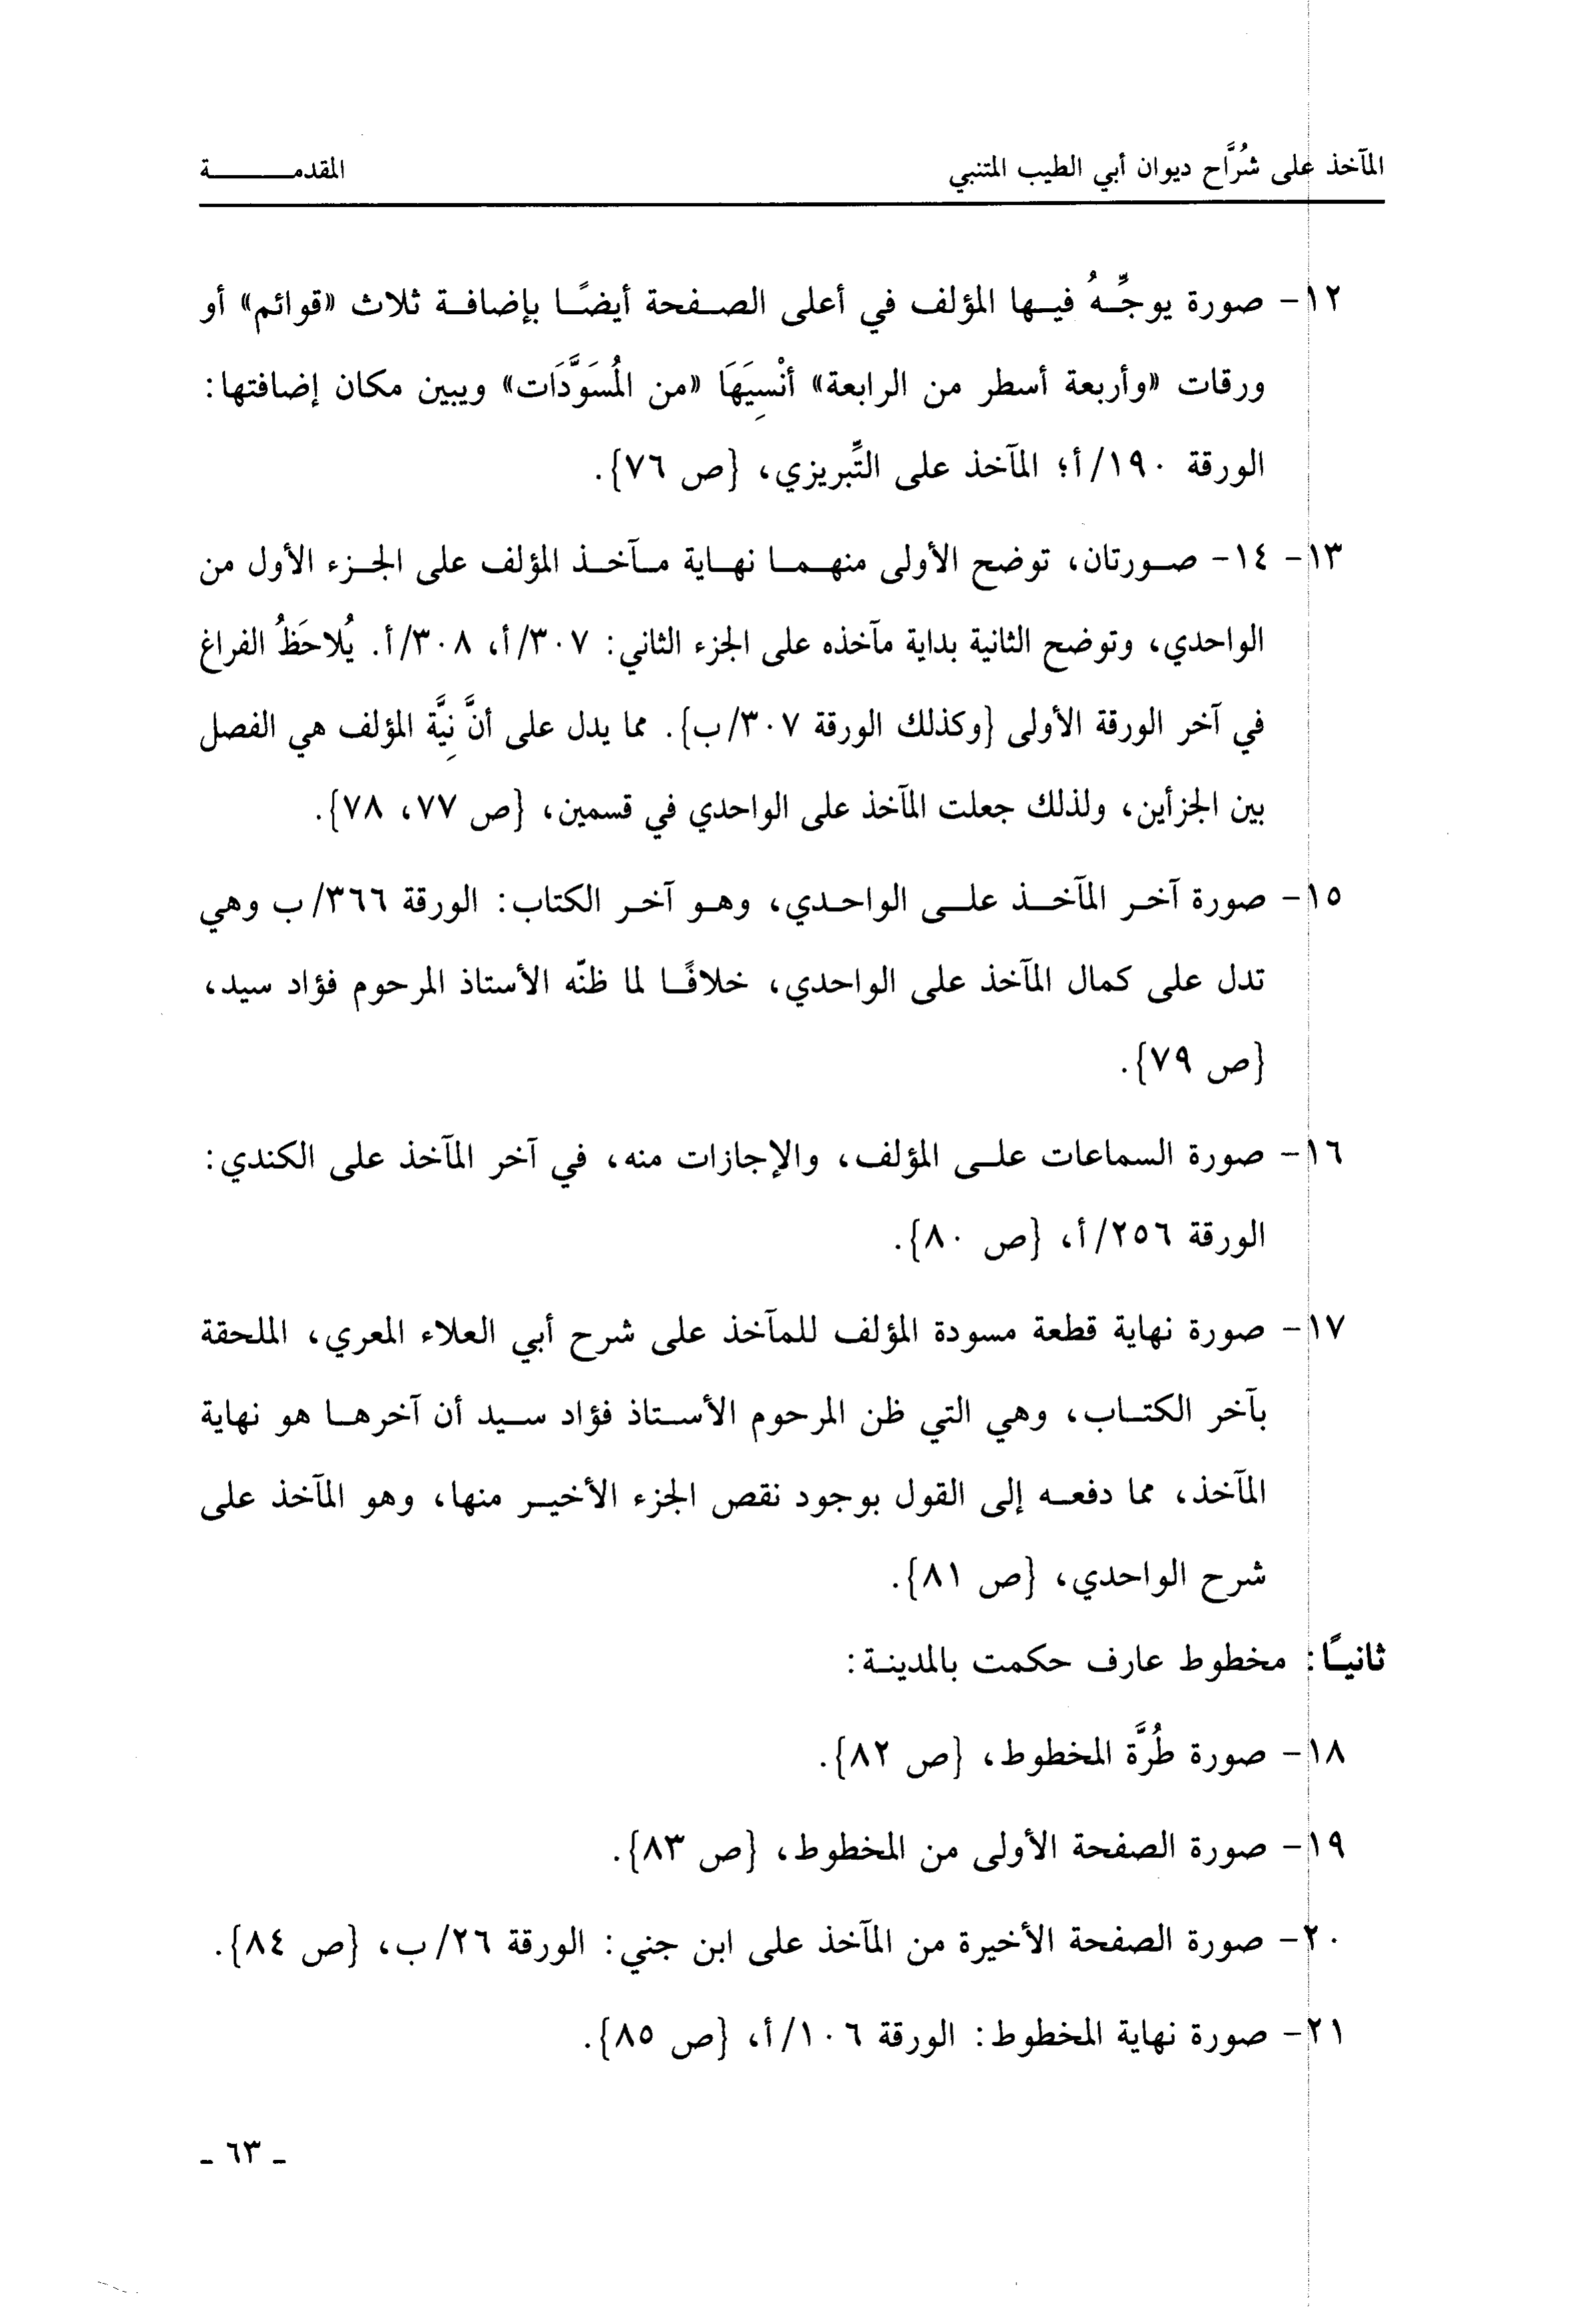 المآخذ على شُرَّاح ديوان أبي الطيب المتنبي
المقدمـــــــــة
١٢- صورة يوجِّـهُ فيـها المؤلف في أعلى الصـفحة أيضًـا بإضافـة ثلاث «قوائم» أو
ورقات «وأربعة أسطر من الرابعة» أنْسِيَهَا «من المُسَوَّدَات» ويبين مكان إضافتها:
الورقة ١٩٠/أ؛ المآخذ على التِّبريزي، {ص ٧٦}.
١٣- ١٤- صـورتان، توضح الأولى منهـمـا نهـاية مـآخـذ المؤلف على الجـزء الأول من
الواحدي، وتوضح الثانية بداية مآخذه على الجزء الثاني: ٣٠٧/أ، ٣٠٨/أ. يُلاحَظُ الفراغ
في آخر الورقة الأولى {وكذلك الورقة ٣٠٧/ب}. مما يدل على أنَّ نِيَّة المؤلف هي الفصل
بين الجزأين، ولذلك جعلت المآخذ على الواحدي في قسمين، {ص ٧٧، ٧٨}.
١٥- صورة آخـر المآخــذ علــى الواحـدي، وهـو آخـر الكتاب: الورقة ٣٦٦/ب وهي
تدل على كمال المآخذ على الواحدي، خلافًـا لما ظنّه الأستاذ المرحوم فؤاد سيد،
{ص ٧٩}.
١٦- صورة السماعات علــى المؤلف، والإجازات منه، في آخر المآخذ على الكندي:
الورقة ٢٥٦/أ، {ص ٨٠}.
١٧- صورة نهاية قطعة مسودة المؤلف للمآخذ على شرح أبي العلاء المعري، الملحقة
بآخر الكتـاب، وهي التي ظن المرحوم الأسـتاذ فؤاد سـيد أن آخرهـا هو نهاية
المآخذ، مما دفعـه إلى القول بوجود نقص الجزء الأخيـر منها، وهو المآخذ على
شرح الواحدي، {ص ٨١}.
ثانيـًا: مخطوط عارف حكمت بالمدينـة:
١٨- صورة طُرَّة المخطوط، {ص ٨٢}.
١٩- صورة الصفحة الأولى من المخطوط، {ص ٨٣}.
٢٠- صورة الصفحة الأخيرة من المآخذ على ابن جني: الورقة ٢٦/ب، {ص ٨٤}.
٢١- صورة نهاية المخطوط: الورقة ١٠٦/أ، {ص ٨٥}.
ـ ٦٣ ـ